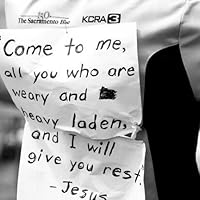 The Sacramento Bee KCRA 3
"Come to me,
all you who are
weary and
heavy laden,
and I will
give you rest."
- Jesus